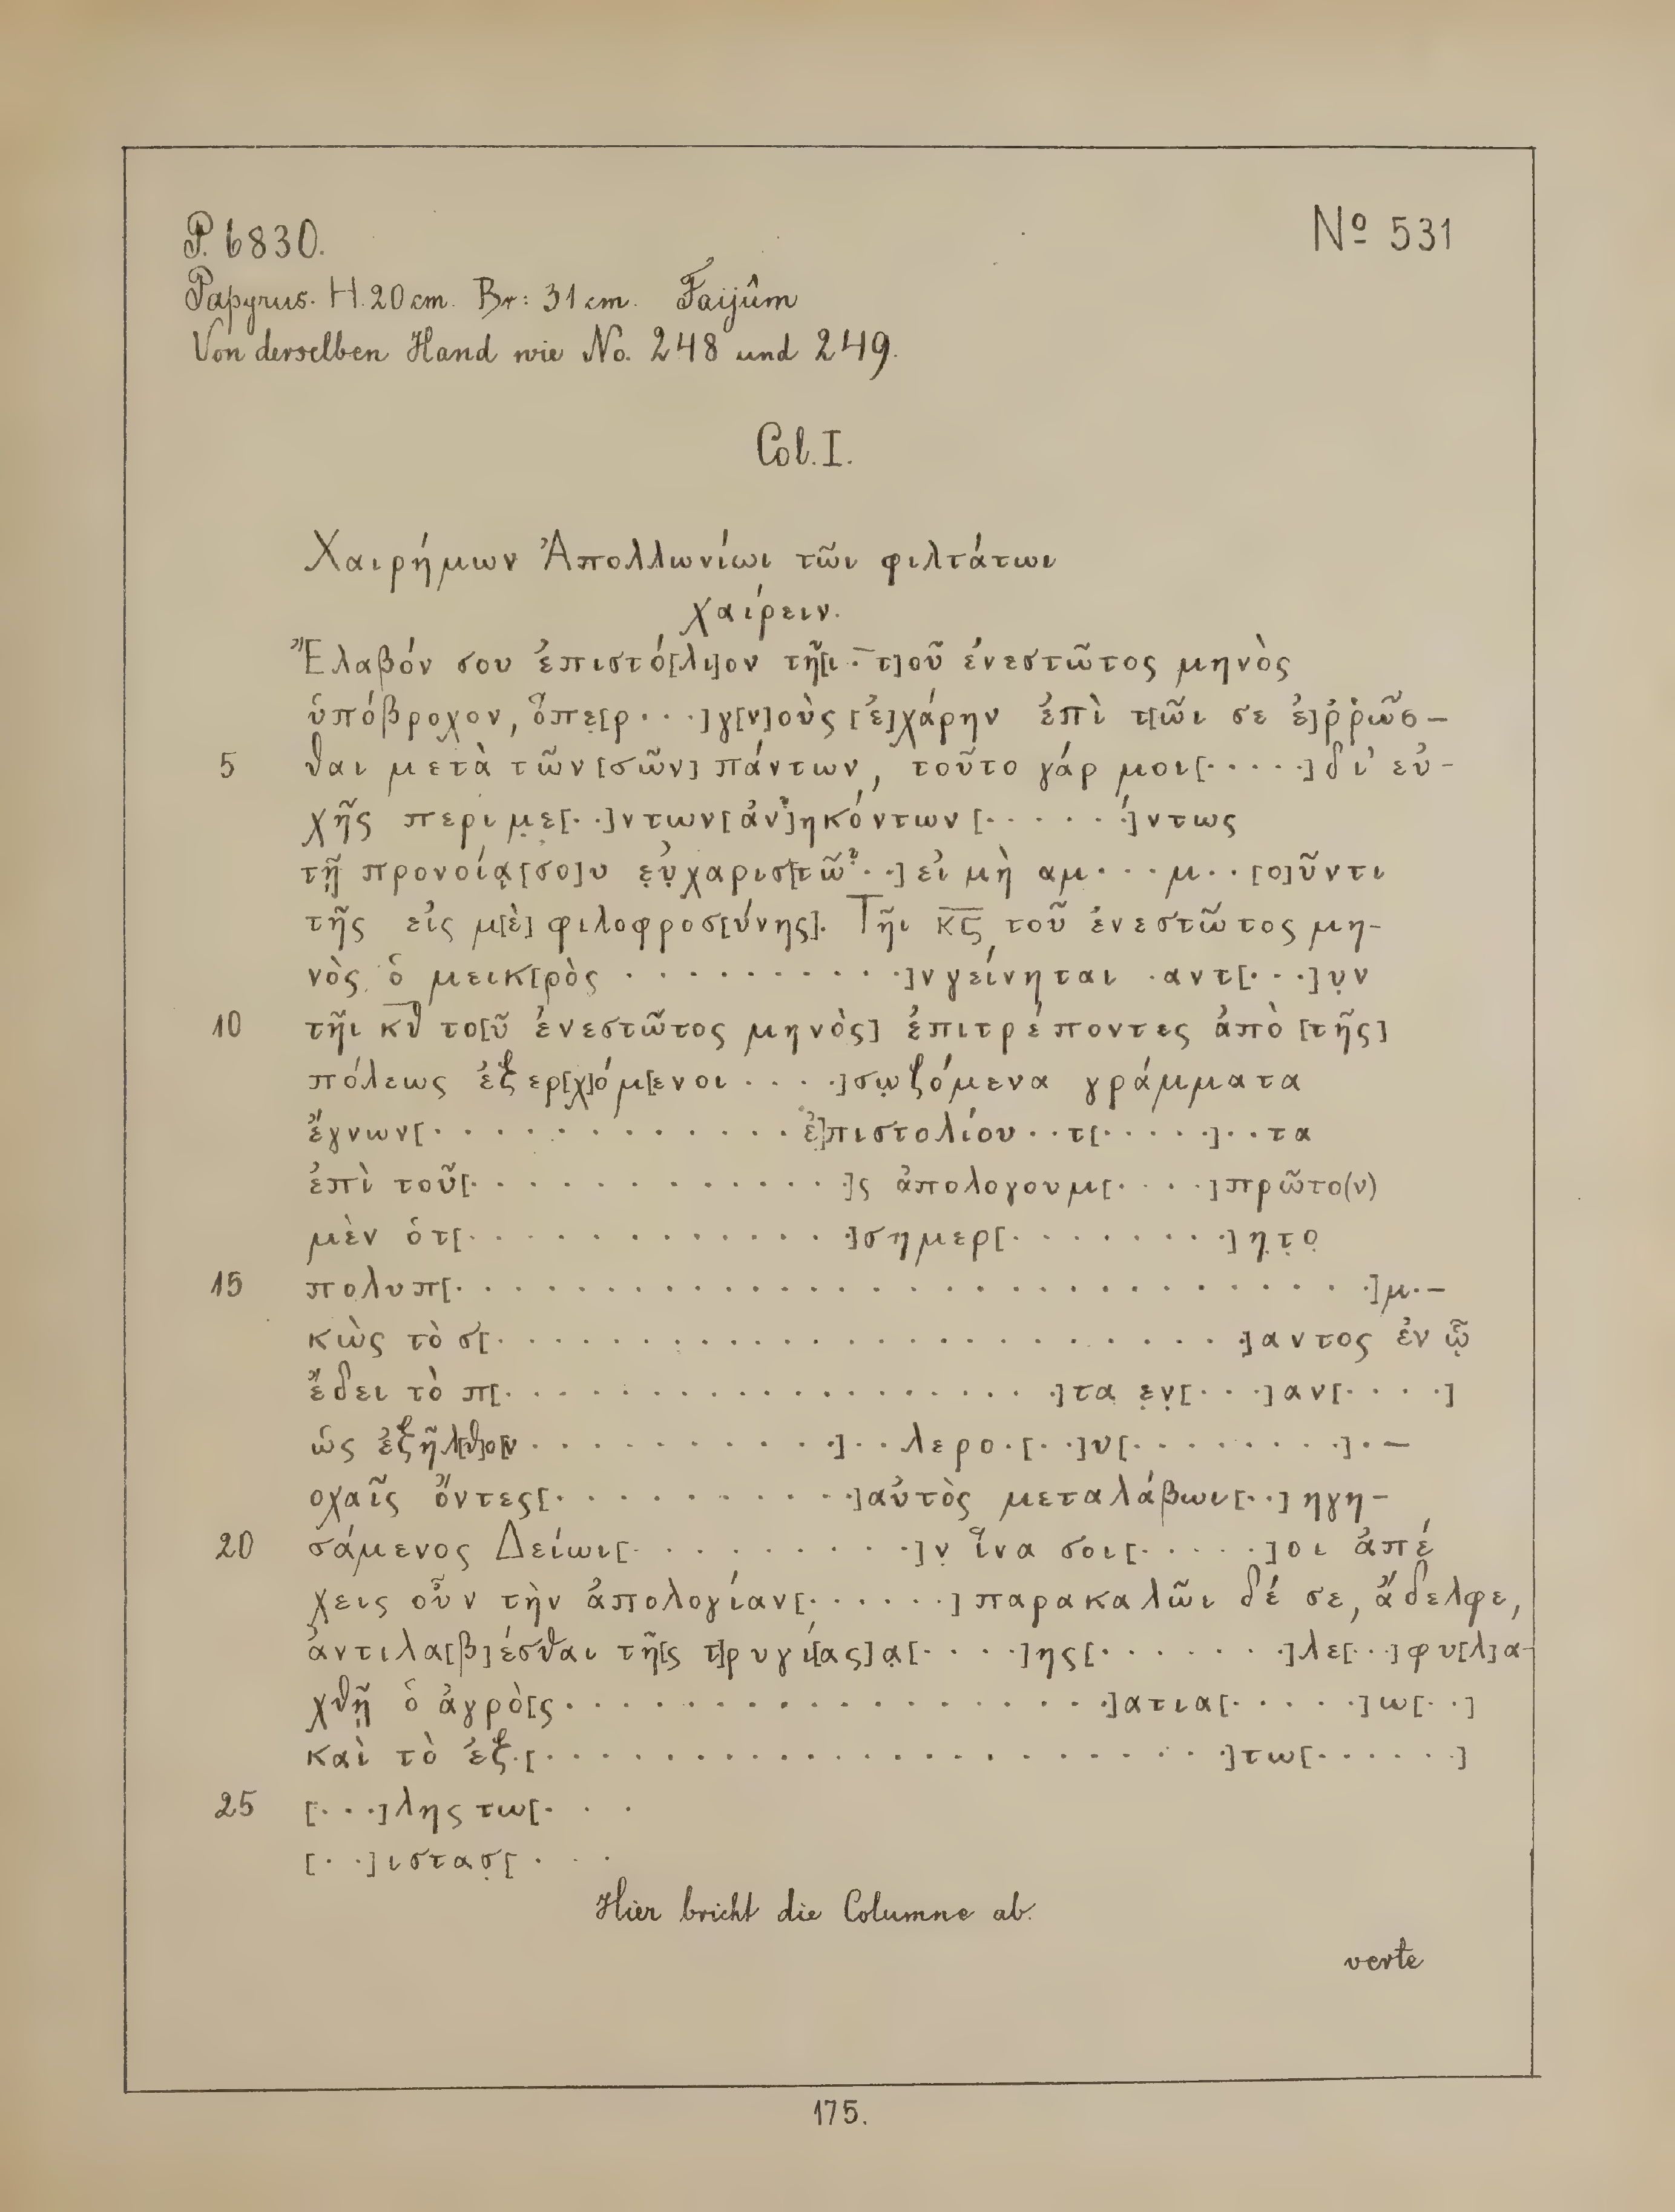 P. 6830.
Nº 531
Papyrus. H. 20 cm. Br: 31 cm. Faijûm
Von derselben Hand wie No. 248 und 249.
Col. I.
Χαιρήμων Ἀπολλωνίωι τῶι φιλτάτωι
χαίρειν.
Ἔλαβόν σου ἐπιστό[λι]ον τῆ[ι ·̅ τ]οῦ ἐνεστῶτος μηνὸς
ὑπόβροχον, ὅπε̣[ρ · · ·]γ[ν]οὺς [ἐ]χάρην ἐπὶ τ[ῶι σε ἐ]ῤῥῶσ–
5 θαι μετὰ τῶν [σῶν] πάντων, τοῦτο γάρ μοι[· · · · ·] δι' εὐ-
χῆς περιμ̣ε[· ·]ντων[ἀν?]ηκόντων [· · · · · ·́]ντως
τῇ̣ προνοίᾳ[σο]υ ε̣ὐ̣χαρισ[τῶ? · ·] εἰ μὴ αμ · · · μ · · [ο]ῦντι
τῆς εἰς μ[ὲ] φιλοφροσ[ύνης]. Τῆι κ̅ϛ̅ τοῦ ἐνεστῶτος μη-
νὸς ὁ μεικ[ρὸς · · · · · · · · · ·]ν γείνηται ·αντ[· · ·]υ̣ν
10 τῆι κ̅θ̅ το[ῦ ἐνεστῶτος μηνὸς] ἐπιτρέποντες ἀπὸ [τῆς]
πόλεως ἐξερ[χ]όμ[ενοι · · · ·]σω̣ζόμενα γράμματα
ἔγνων[· · · · · · · · · · · · · ἐ]πιστολίου · · τ[· · · · ·] · · τα
ἐπὶ τοῦ[· · · · · · · · · · · · ·]ς ἀπολογουμ[· · · ·] πρῶτο(ν)
μὲν ὁτ[· · · · · · · · · · · · ·]σημερ[· · · · · · · ·] η̣τ̣ο̣
15 πολυπ[· · · · · · · · · · · · · · · · · · · · · · · · · · · · · · ·]μ · –
κὼς τὸ σ[· · · · · · · · · · · · · · · · · · · · · · · · · ·]αντος ἐν ᾧ
ἔδει τὸ π[· · · · · · · · · · · · · · · · · · ·]τα ε̣ν̣[· · ·]αν[· · · ·]
ὡς ἐξῆλ[θ]ο[ν · · · · · · · · · · ·] · · λερο · [· ·]υ[· · · · · · · ·] · –
οχαῖς ὄντες[· · · · · · · · · · ·]αὐτὸς μεταλάβωι[· ·] ηγη–
20 σάμενος Δείωι[· · · · · · · · · ·]ν̣ ἵνα σοι[· · · · ·]οι ἀπέ
χεις οὖν τὴν ἀπολογίαν[· · · · · ·] παρακαλῶι δέ σε, ἄδελφε,
ἀντιλα[β]έσθαι τῆ[ς τ]ρυγί[ας]α̣[· · · ·]ης[· · · · · · ·]λε[· · ·]φυ[λ]α–
χθῇ ὁ ἀγρὸ[ς · · · · · · · · · · · · · · · · · · ·]ατια[· · · · ·]ω[· ·]
καὶ τὸ ἐξ · [· · · · · · · · · · · · · · · · · · · · · · · ·]τω[· · · · · ·]
25 [· · ·]λης τω[· · ·
[· ·]ιστασ̣[· · ·
Hier bricht die Columne ab.
verte
175.